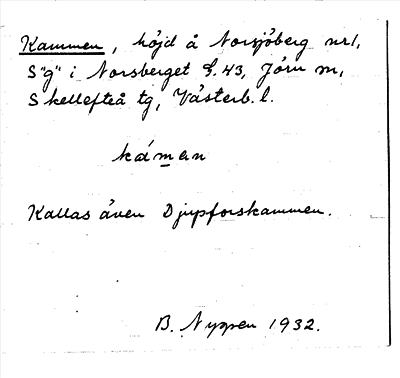 Kammen, höjd å Norsjöberg nr1,
S"g" i Norsberget f. 43, Jörn sn,
Skellefteå tg, Västerb. l.
káman
Kallas även Djupforskammen.
B. Nyman 1932.